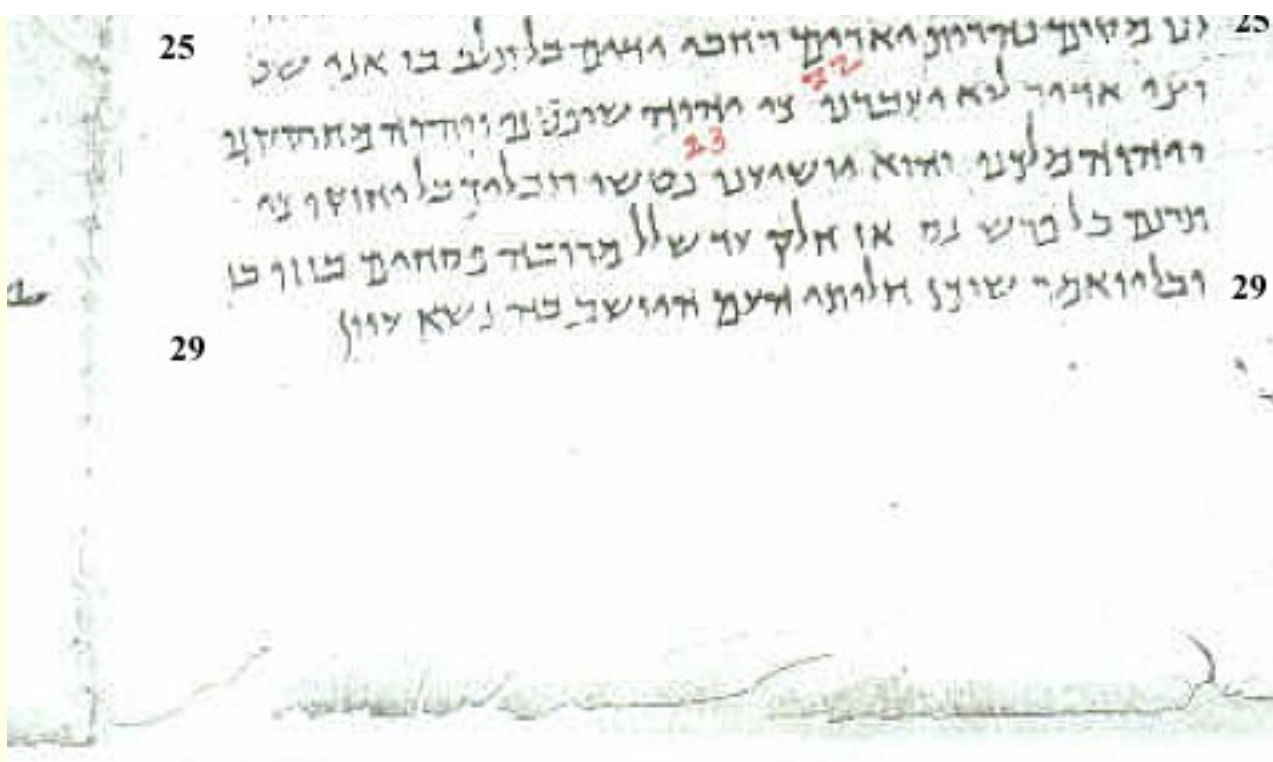 25 לנו מקום נהרים יארים רחבי ידים בל תלך בו אני שט 25
22
וצי אדיר לוא יעברנו כי יהוה שופטנו ויהוה מחוקקנו
23
ויהוה מלכנו והוא יושיענו נטשו חבליך בל יחזקו כן
תרנם בל פרש נס אז חלק עד שלל מרובה פסחים בזזו בז
29 ובל יואמר שוכן חליתי העם היושב בה נשא עוון 29